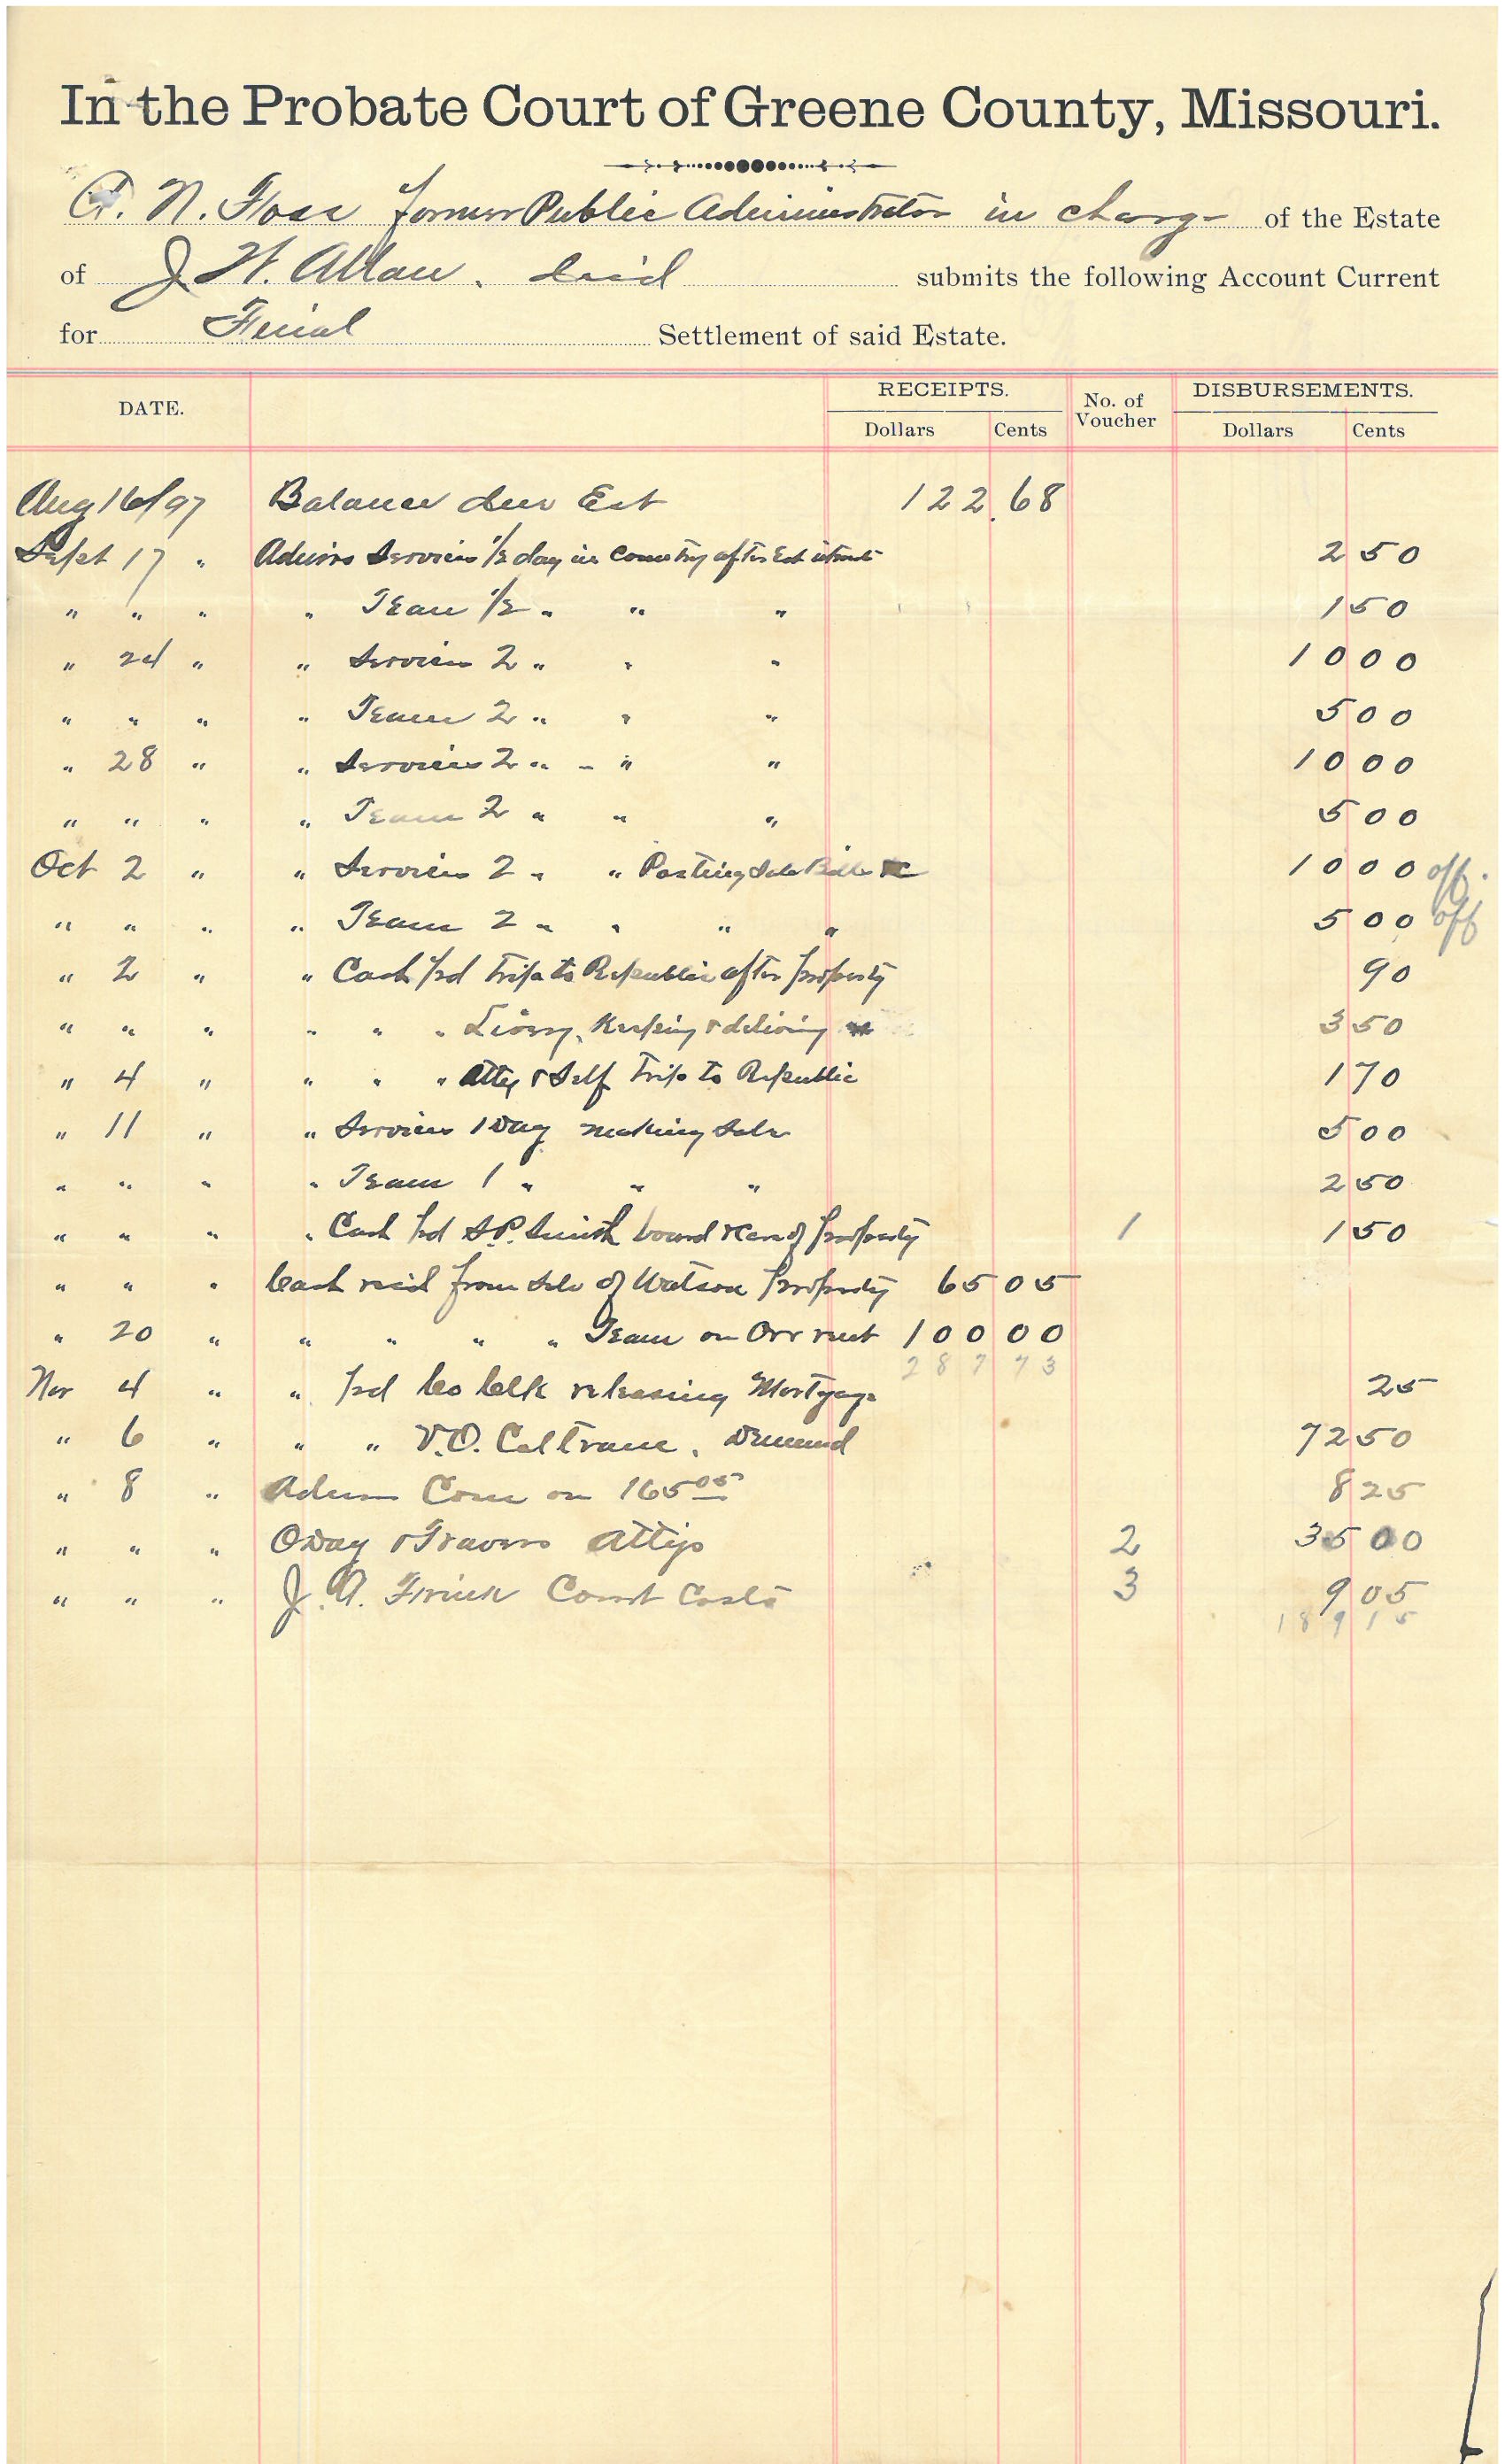 In the Probate Court of Greene County, Missouri.
A. N. Foss former Public Administrator in charge of the Estate
of J H. Allan. decd submits the following Account Current
for Final Settlement of said Estate.
DATE. RECEIPTS. No. of Voucher DISBURSEMENTS.
Dollars Cents Dollars Cents
Aug 16/97 Balance due Est 122.68
Sept 17 " Admrs Services 1/2 day in Country after Est 2 50
" " " " Team 1/2 " " " 1 50
" 24 " " Services 2 " " " 10 00
" " " " Team 2 " " " 5 00
" 28 " " Services 2 " " " 10 00
" " " " Team 2 " " " 5 00
Oct 2 " " Services 2 " " Posting Sale Bills 10 00 off.
" " " " Team 2 " " " " 5 00 off
" 2 " " Cash pd trip to Republic after property 90
" " " " " " Livery, Keeping & 3 50
" 4 " " " " Atty & Self trip to Republic 1 70
" 11 " " Services 1 Day making Sale 5 00
" " " " Team 1 " " " 2 50
" " " " Cash pd S.P. Smith board & care of property 1 1 50
" " " Cash recd from Sale of Watson property 65 05
" 20 " " " " " Team on Orr 100 00
287 73
Nov 4 " " pd Co Clk releasing Mortgage 25
" 6 " " " V.O. Coltrane. Demand 72 50
" 8 " Adm Com on 165 05 8 25
" " " Oday & Travers Attys 2 35 00
" " " J. A. Frink Court Costs 3 9 05
189 15